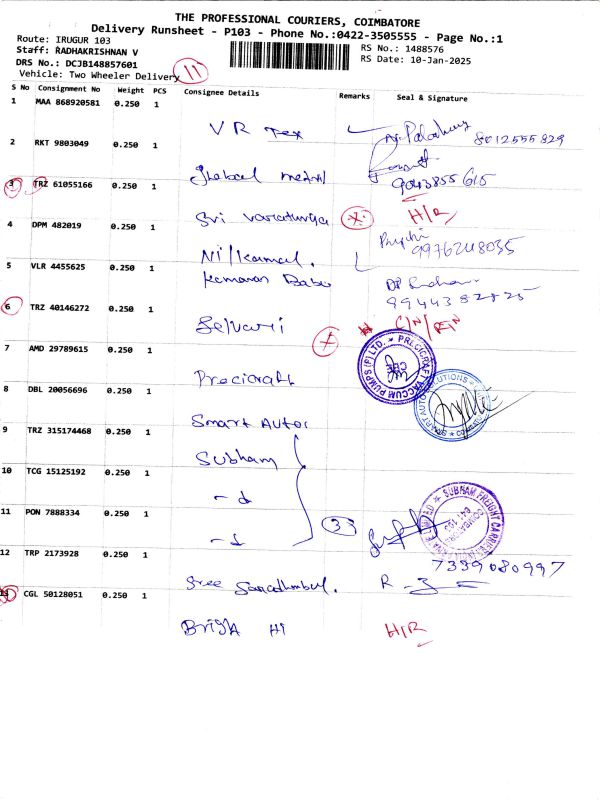 THE PROFESSIONAL COURIERS, COIMBATORE
Delivery Runsheet - P103 - Phone No.:0422-3505555 - Page No.:1
Route: IRUGUR 103
Staff: RADHAKRISHNAN V
DRS No.: DCJB148857601
Vehicle: Two Wheeler Delivery
11
RS No.: 1488576
RS Date: 10-Jan-2025
S No Consignment No Weight PCS Consignee Details Remarks Seal & Signature
1 MAA 868920581 0.250 1
VR Tex 8012555829
2 RKT 9803049 0.250 1
Global 9043855615
3 TRZ 61055166 0.250 1
Sri H/R
4 DPM 482019 0.250 1
Nil/Kamal. 9976248035
5 VLR 4455625 0.250 1
Kumaran Babu 9944382825
6 TRZ 40146272 0.250 1
Selvari
7 AMD 29789615 1 0.250 1
Precicraft
PRECICRAFT VACCUM PUMPS (P) LTD.
8 DBL 20056696 0.250 1
Smart Autos
SMART AUTO SOLUTIONS
9 TRZ 315174468 0.250 1
Subham
10 TCG 15125192 0.250 1
11 PON 7888334 0.250 1
33
SUBHAM FREIGHT
12 TRP 2173928 0.250 1
7339080997
Sree
13 CGL 50128051 0.250 1
H/R